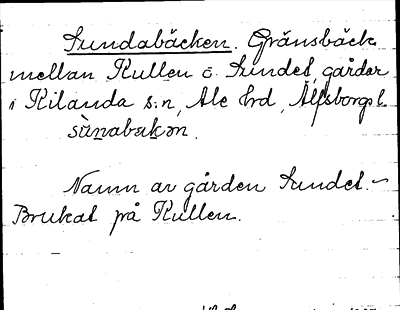 Sundabäcken. Gränsbäck
mellan Kullen o. Sundet, gårdar
i Kilanda s:n, Ale hrd, Älfsborgs l.
sùnabækən.
Namn av gården Sundet. ~
Brukat på Kullen.